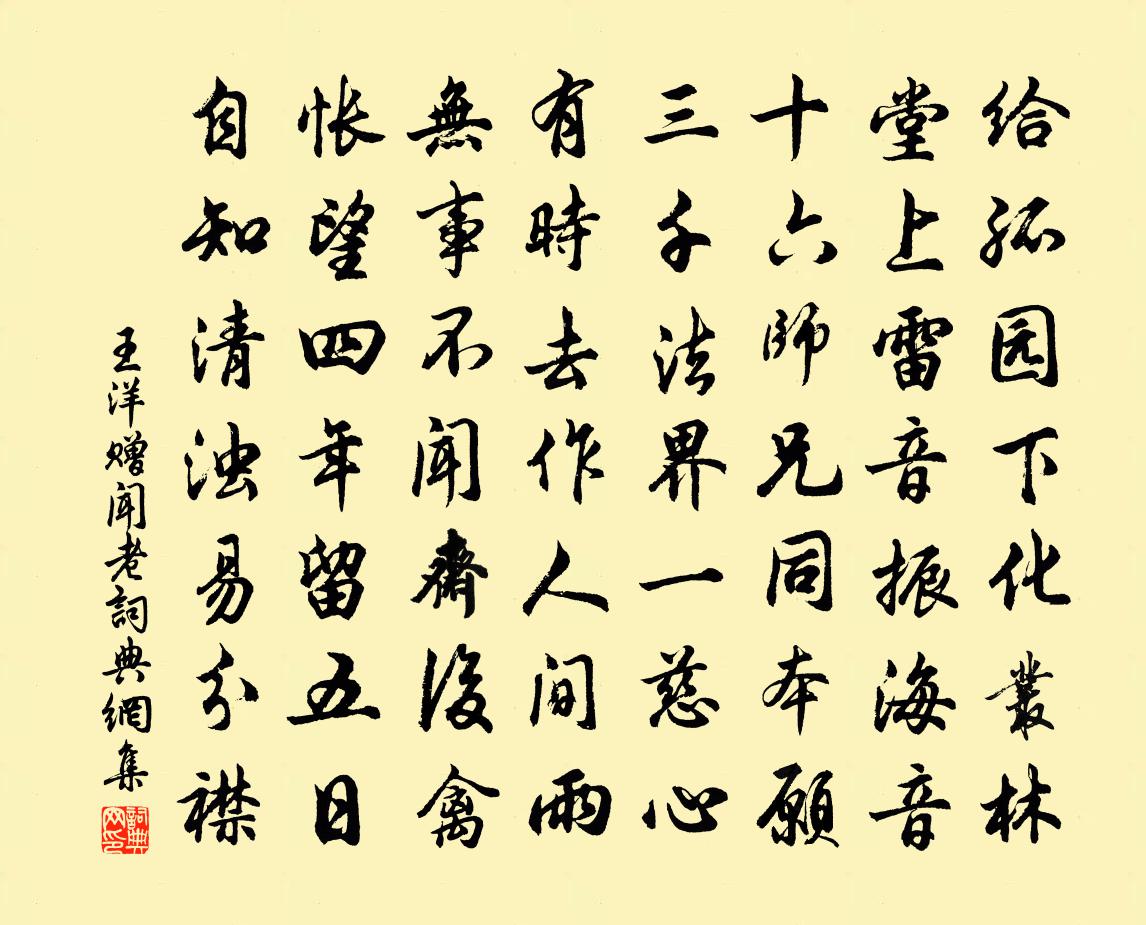 给孤园下化叢林
堂上雷音振海音
十六師兄同本願
三千法界一慈心
有時去作人间雨
無事不闻齋後禽
怅望四年留五日
自知清浊易分襟
王洋赠闻老詞典網集
詞典网印